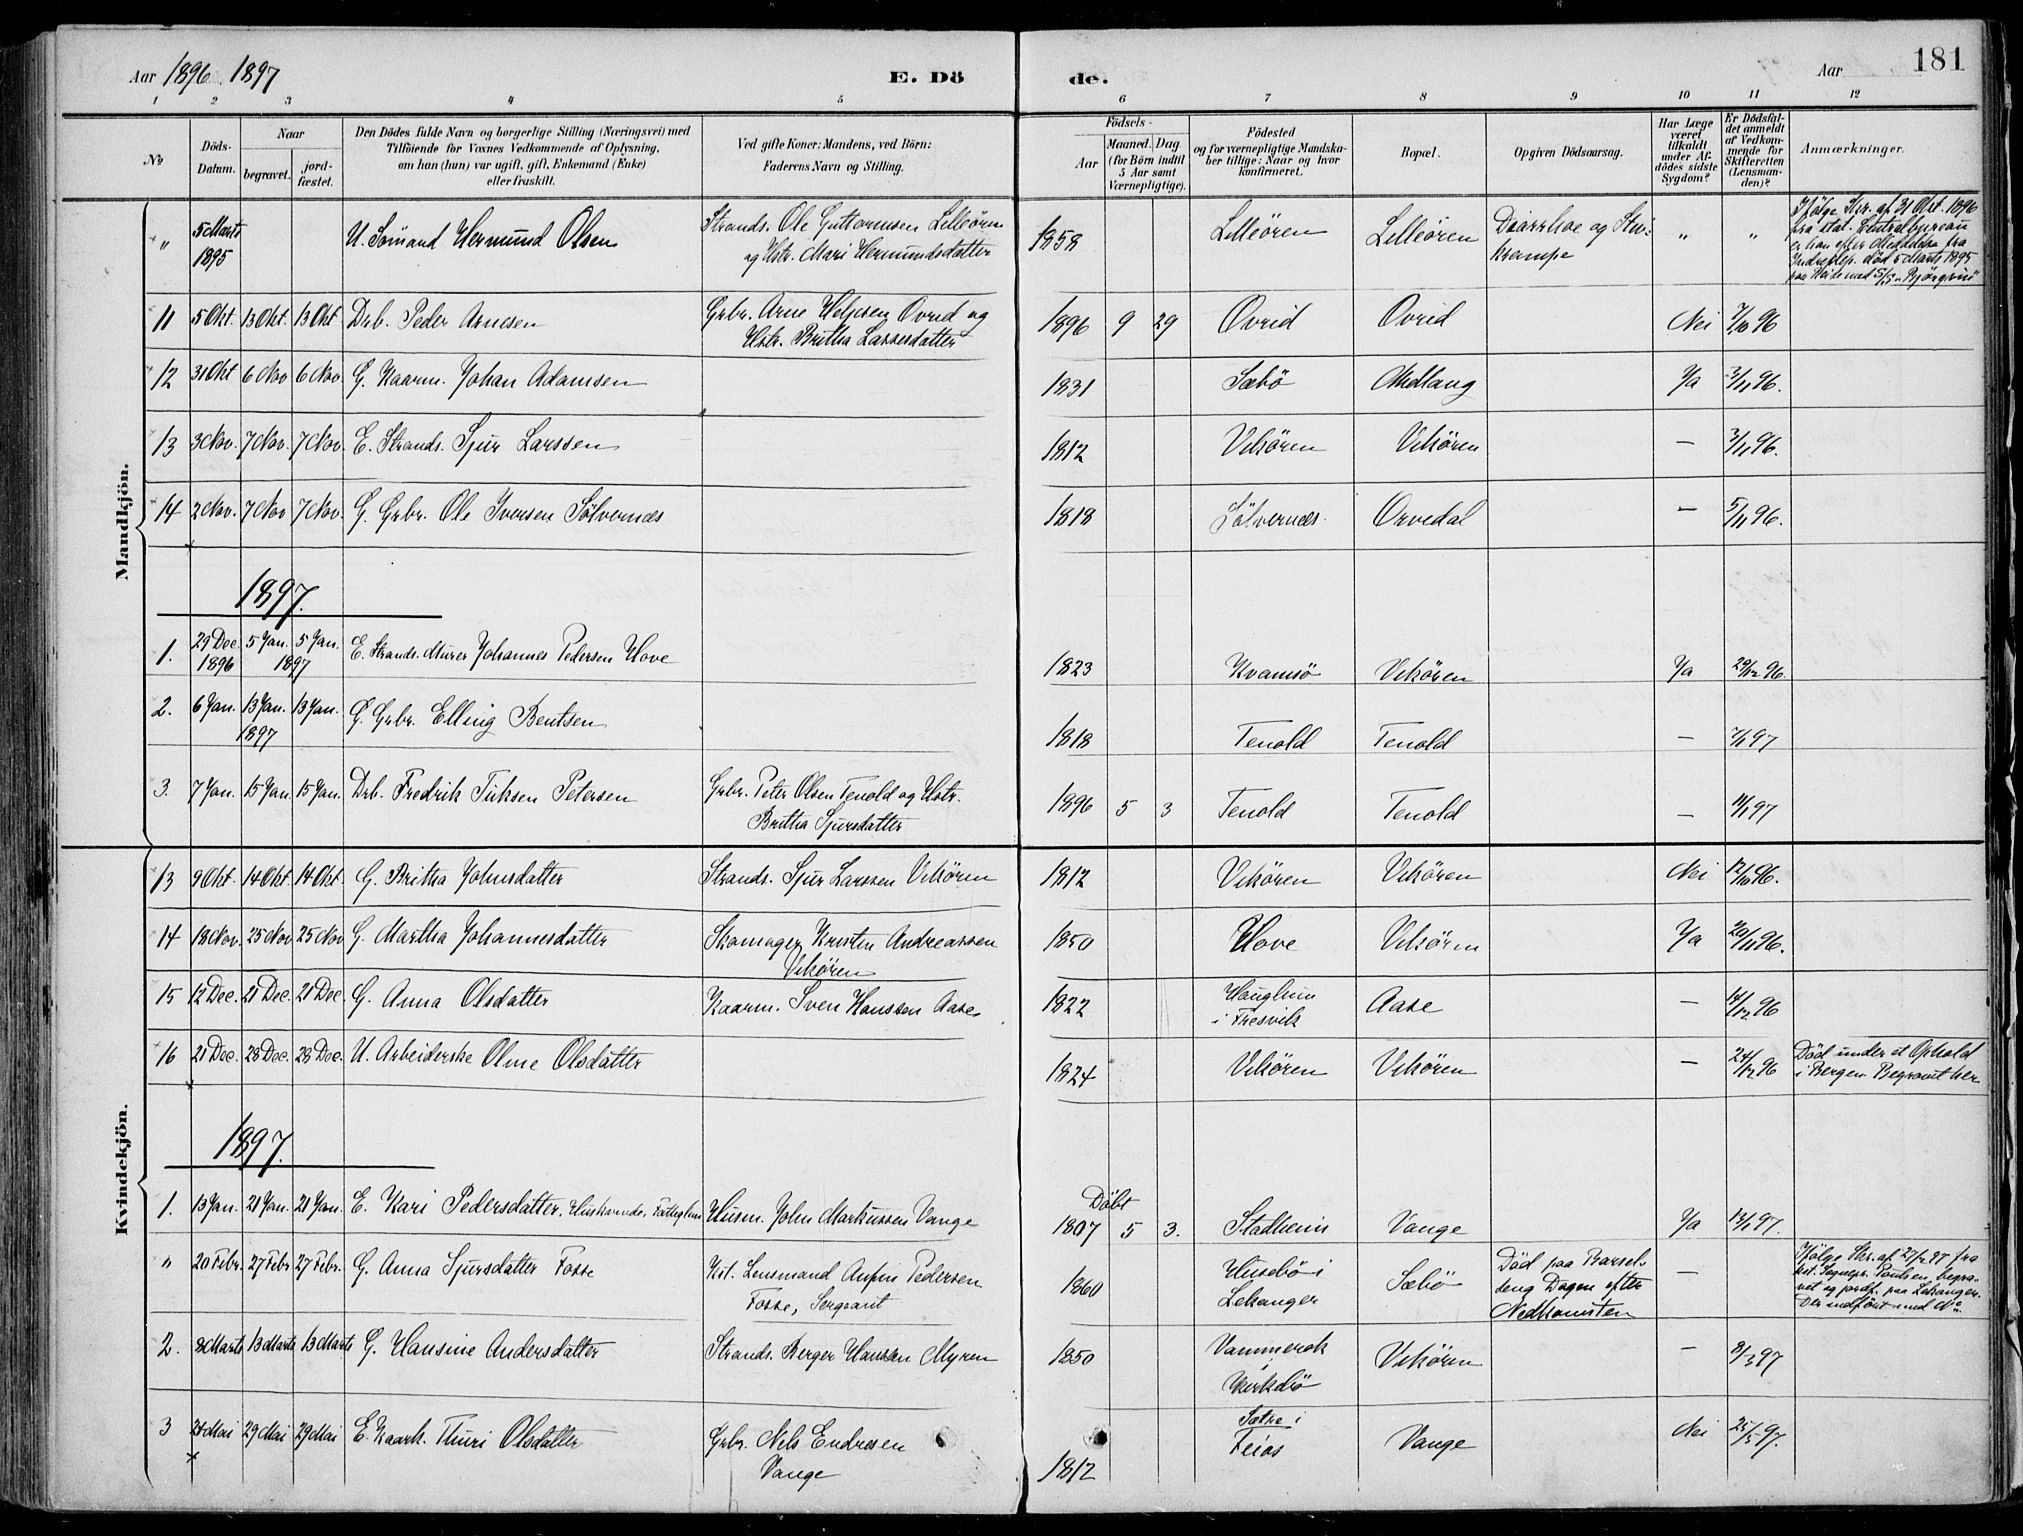 Aar 1896. 1897
E. Dö
de.
Aar
181
1 2 3 4 5 6 7 8 9 10 11 12
No
Döds-
Datum.
Naar
begravet.
jord-
fæstet.
Den Dödes fulde Navn og borgerlige Stilling (Næringsvei) med
Tilföiende for Voxnes Vedkommende af Oplysning,
om han (hun) var ugift, gift, Enkemand (Enke)
eller fraskilt.
Ved gifte Koner: Mandens, ved Börn:
Faderens Navn og Stilling.
Födsels-
Aar
Maaned. Dag
(for Börn indtil
5 Aar samt
Værnepligtige).
Födested
og for værnepligtige Mandska-
ber tillige: Naar og hvor
konfirmeret.
Bopæl.
Opgiven Dödsaarsag.
Har Læge
været
tilkaldt
under Af-
dödes sidste
Sygdom?
Er Dödsfal-
det anmeldt
af Vedkom-
mende for
Skifteretten
(Lensman-
den)?
Anmærkninger.
Mandkjön.
" 5 Marts 1895 U. Sömand Hermund Olsen Strands. Ole Guttormsen Lilleören
og Hstr. Mari Hermundsdatter 1858 Lilleören Lilleören Diarrhoe og
Krampe " " Ifölge Skr. af 31 Okt. 1896
fra stat. Centralbureau
er han efter Meddelelse fra
död 5 Marts 1895
11 5 Okt. 13 Okt. 13 Okt Drb. Peder Arnesen Grbr. Arne Helgesen Ovrid og
Hstr. Britha Lassesdatter 1896 9 29 Ovrid Ovrid Nei 7/10 96
12 31 Okt 6 Nov 6 Nov. G. Kaarm. Johan Adamsen 1831 Sæbö Midlang Ja 3/11 96.
13 3 Nov. 7 Nov. 7 Nov. E. Strands. Sjur Larssen 1812 Vikören Vikören — 3/11 96.
14 2 Nov. 7 Nov 7 Nov. G. Grbr. Ole Iversen Sölvernæs 1818 Sölvernæs. Orvedal — 5/11 96.
1897.
1. 29 Dec. 1896 5 Jan. 5 Jan. 1897 E. Strands. Murer Johannes Pedersen Hove 1823 Kvamsö Vikören Ja 29/12 96.
2. 6 Jan. 13 Jan. 13 Jan. 1897 G. Grbr. Elling Bentsen 1818 Tenold Tenold — 7/1 97
3. 7 Jan. 15 Jan. 15 Jan. Drb. Fredrik Petersen Grbr. Peter Olsen Tenold og Hstr.
Britha Sjursdatter 1896 5 3 Tenold Tenold — 11/1 97
Kvindekjön.
13 9 Okt. 14 Okt 14 Okt. G. Britha Johnsdatter Strands. Sjur Larssen Vikören 1812 Vikören Vikören Nei 12/10 96.
14 18 Nov. 25 Nov 25 Nov G. Martha Johannesdatter Skomager Kristen Andreassen
Vikören 1850 Hove Vikören Ja 20/11 96.
15 12 Dec. 21 Dec. 21 Dec. G. Anna Olsdatter Kaarm. Sven Hanssen Aase. 1822 Hauglum
i Fresvik Aase — 14/12 96
16 21 Dec. 28 Dec. 28 Dec. U. Arbeiderske Oline Olsdatter 1824 Vikören Vikören — 24/12 96 Död under et Ophold
i Bergen. Begravet her
1897.
1. 13 Jan. 21 Jan. 21 Jan. E. Kari Pedersdatter, Huskvinde, Fattiglem Husm. John Markussen Vange Döbt
1807 5 3. Stadheim Vange Ja 13/1 97.
" 20 Febr. 27 Febr 27 Febr. G. Anna Sjursdatter Fosse Kst. Lensmand Anfin Pedersen
Fosse, Sergeant 1860 Husebö i
Lekanger Sæbö Död paa Barsel-
seng Dagen efter
Nedkomsten — Ifölge Skr. af 27/2 97 fra
kst. Sognepr. Paulsen, begra-
vet og jordf. paa Lekanger.
Der indfört med No.
2. 8 Marts 13 Marts 13 Marts G. Hansine Andersdatter Strands. Berger Hansen Myren 1850 Vammerak
i
Kirkebö Vikören — 8/3 97
3 24 Mai 29 Mai 29 Mai E. Kaark. Thuri Olsdatter Grbr. Nels Endresen
Vange 1812 Sætre i
Feios Vange Nei 25/5 97.